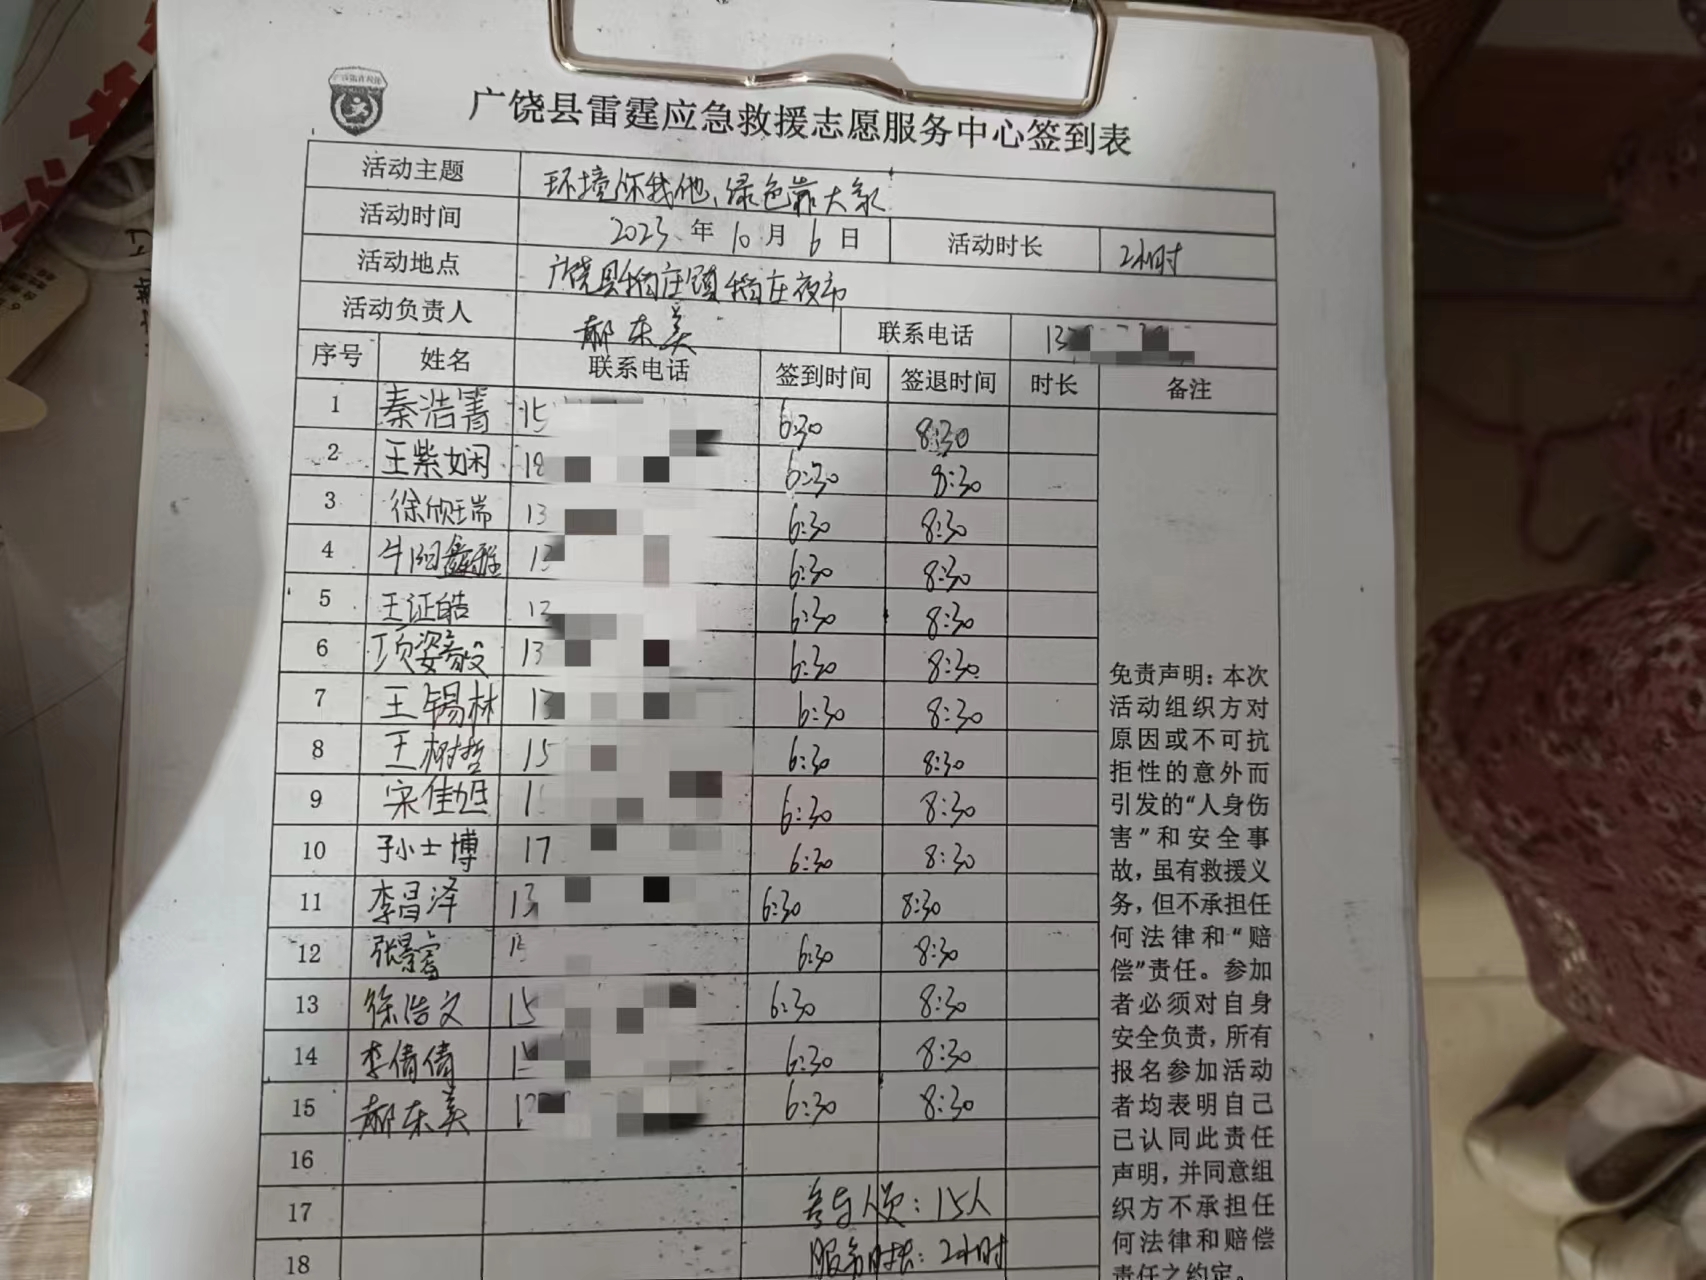 广饶县雷霆应急救援志愿服务中心签到表
活动主题 环境你我他、绿色靠大家
活动时间 2023年10月6日 活动时长 2小时
活动地点 广饶县稻庄镇稻庄夜市
活动负责人 郝东美 联系电话 13
序号 姓名 联系电话 签到时间 签退时间 时长 备注
1 秦浩菁 15 6:30 8:30
2 王紫娴 18 6:30 8:30
3 徐欣瑞 13 6:30 8:30
4 牛阳鑫雅 13 6:30 8:30
5 王证皓 13 6:30 8:30
6 项姿 13 6:30 8:30
7 王锡林 13 6:30 8:30
8 王树哲 15 6:30 8:30
9 宋佳旭 1 6:30 8:30
10 孙士博 17 6:30 8:30
11 李昌泽 13 6:30 8:30
12 张景睿 15 6:30 8:30
13 徐浩文 15 6:30 8:30
14 李倩倩 15 6:30 8:30
15 郝东美 1 6:30 8:30
16
17 参与人员：15人
18 服务时长：2小时
免责声明：本次
活动组织方对
原因或不可抗
拒性的意外而
引发的“人身伤
害”和安全事
故，虽有救援义
务，但不承担任
何法律和“赔
偿”责任。参加
者必须对自身
安全负责，所有
报名参加活动
者均表明自己
已认同此责任
声明，并同意组
织方不承担任
何法律和赔偿
责任之约定。